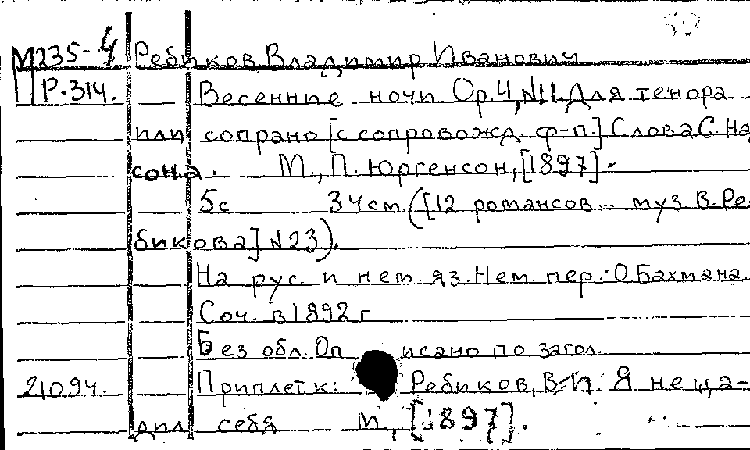 М235-4 Ребиков Владимир Иванович
Р-314. Весенние ночи Ор.4, №11. Для тенора
или сопрано [с сопровожд. ф-п.] Слова С. На
сона. М., П. Юргенсон, [1897].
5с 34 см. ([12 романсов... муз. В. Ре
бикова] №23).
На рус. и нем яз. Нем пер.: О. Бахмана.
Соч. в 1892 г
Без обл. Описано по загол.
21094. Приплет к: Ребиков, В. И. Я не ща-
дил себя М., [1897].